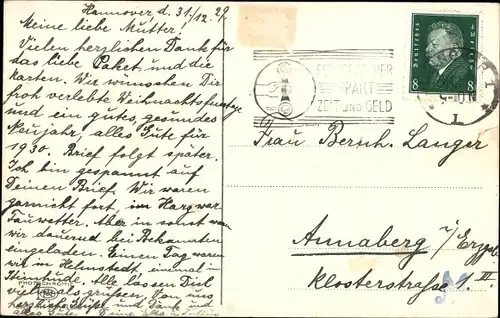 Hannover, d. 31/12. 29
Meine liebe Mutter!
Vielen herzlichen Dank für
das liebe Paket und die
Karten. Wir wünschen Dir
froh verlebte Weihnachtsfeiertage
und ein gutes, gesundes
Neujahr, alles Gute für
1930. Brief folgt später.
Ich bin gespannt auf
Deinen Brief. Wir waren
garnicht fort, im Harz war
Tauwetter. Aber in sonst waren
wir dauernd bei Bekannten
eingeladen. Einen Tag waren
wir in Helmstedt, einmal in
Alle lassen Dich
vielmals grüssen. Von uns
herzliche Grüße und Dank für
alles Liebe. Deine
PHOTOCHROMIE
FERNSPRECHER
SPART
ZEIT UND GELD
Deutsches Reich
8 8
1
Frau Bernh. Langer
Annaberg i/Erzgeb.
Klosterstraße III.